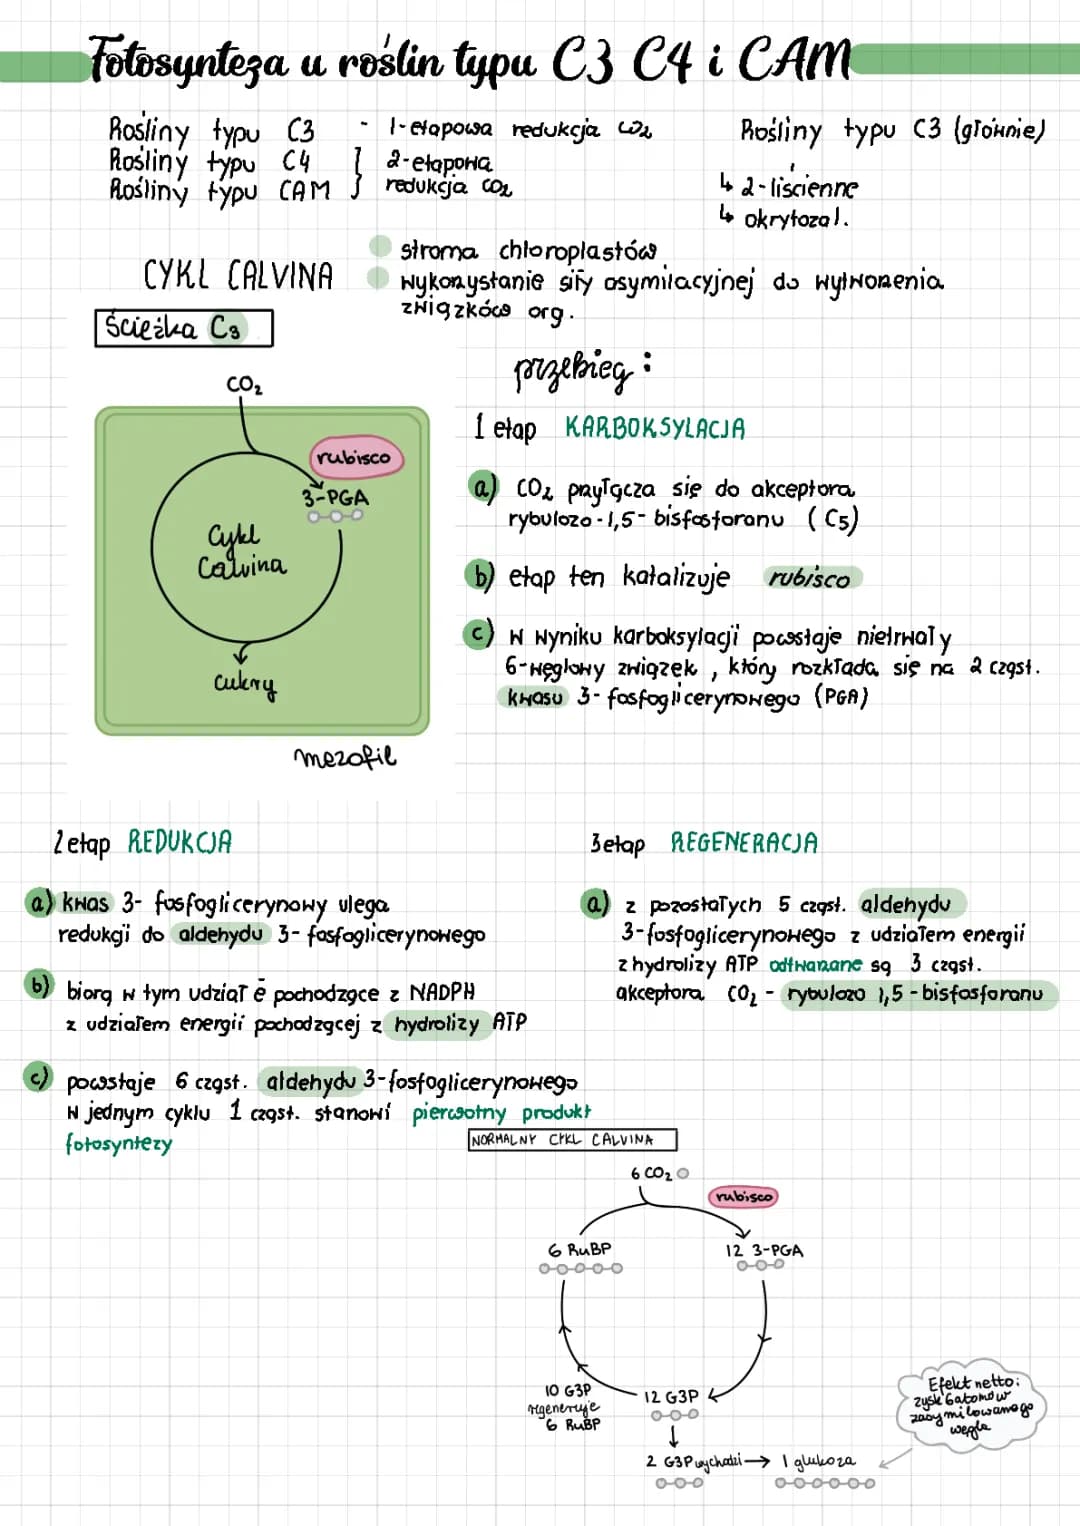 Fotosynteza u roślin typu C3 C4 i CAM
Rośliny typu C3 - 1-etapowa redukcja CO₂
Rośliny typu C4 } 2-etapowa
Rośliny typu CAM redukcja CO₂
Rośliny typu C3 (głównie)
↳ 2-liścienne
↳ okrytozal.
CYKL CALVINA
stroma chloroplastów
wykorzystanie siły asymilacyjnej do wytworzenia
związków org.
Ścieżka C₃
CO₂
rubisco
3-PGA
Cykl
Calvina
cukry
mezofil
przebieg:
1 etap KARBOKSYLACJA
a) CO₂ przyłącza się do akceptora
rybulozo-1,5-bisfosforanu (C5)
b) etap ten katalizuje rubisco
c) w wyniku karboksylacji powstaje nietrwały
6-węglowy związek, który rozkłada się na 2 cząst.
kwasu 3-fosfoglicerynowego (PGA)
2 etap REDUKCJA
a) kwas 3-fosfoglicerynowy ulega
redukcji do aldehydu 3-fosfoglicerynowego
b) biorą w tym udział ē pochodzące z NADPH
z udziałem energii pochodzącej z hydrolizy ATP
c) powstaje 6 cząst. aldehydu 3-fosfoglicerynowego
w jednym cyklu 1 cząst. stanowi pierwotny produkt
fotosyntezy
3 etap REGENERACJA
a) z pozostałych 5 cząst. aldehydu
3-fosfoglicerynowego z udziałem energii
z hydrolizy ATP odtwarzane są 3 cząst.
akceptora CO₂ - rybulozo 1,5-bisfosforanu
NORMALNY CYKL CALVINA
6 CO₂
rubisco
6 RuBP
12 3-PGA
10 G3P
regeneruje
6 RuBP
12 G3P
2 G3P wychodzi → 1 glukoza
Efekt netto:
zysk 6 atomów
zasymilowanego
węgla